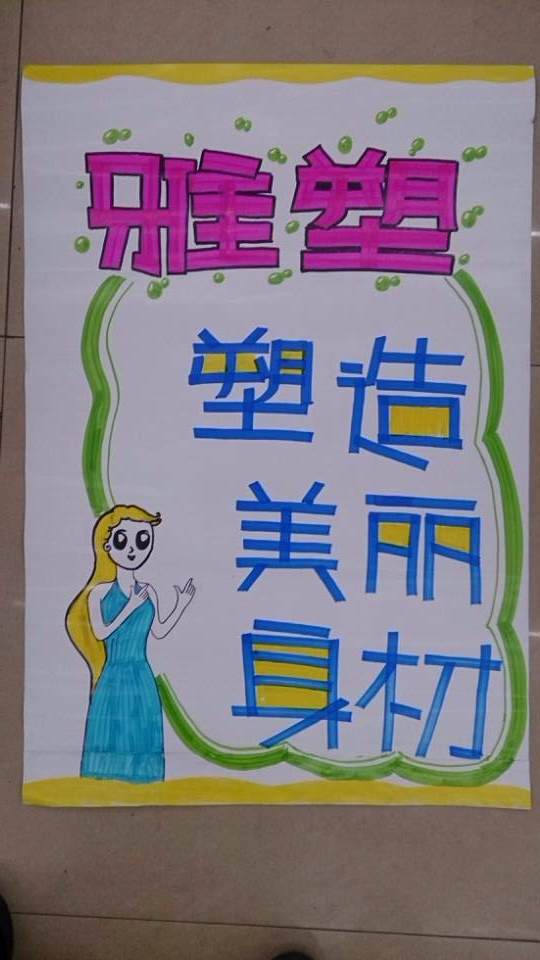 雅塑
塑造
美丽
身材